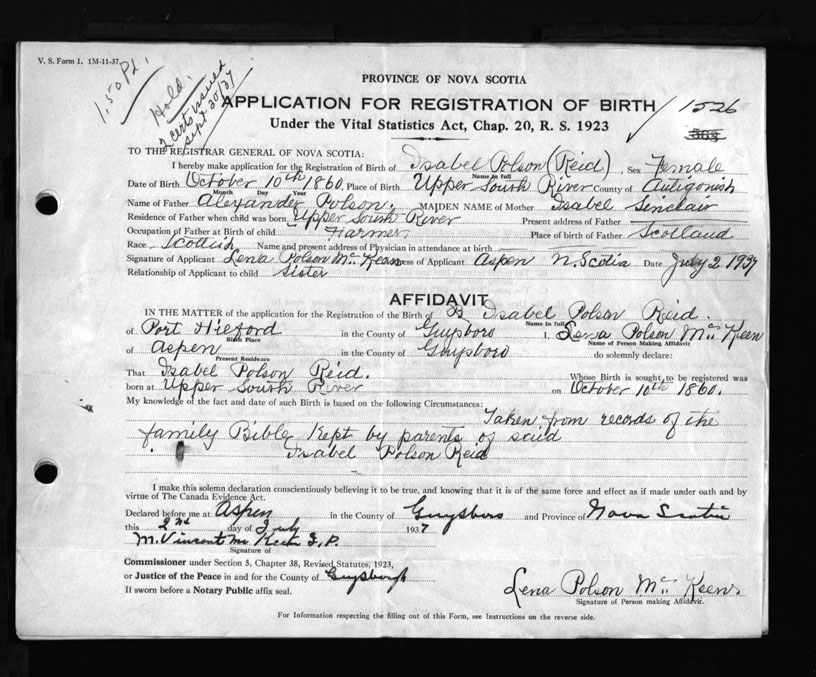 V. S. Form 1. 1M-11-37.
1.50 Pd.
Hold.
2 certs issued
Sept 20/37
PROVINCE OF NOVA SCOTIA
APPLICATION FOR REGISTRATION OF BIRTH / 1526
Under the Vital Statistics Act, Chap. 20, R. S. 1923
TO THE REGISTRAR GENERAL OF NOVA SCOTIA:
I hereby make application for the Registration of Birth of Isabel Polson (Reid) Sex Female
Name in full
Date of Birth October 10th 1860. Place of Birth Upper South River County of Antigonish
Month Day Year
Name of Father Alexander Polson. MAIDEN NAME of Mother Isabel Sinclair
Residence of Father when child was born Upper South River Present address of Father
Occupation of Father at Birth of child Farmer Place of birth of Father Scotland
Race Scottish Name and present address of Physician in attendance at birth
Signature of Applicant Lena Polson McKeen Address of Applicant Aspen N. Scotia Date July 2 1937
Relationship of Applicant to child Sister
AFFIDAVIT
IN THE MATTER of the application for the Registration of the Birth of Isabel Polson Reid.
Name in full
of Port Hilford in the County of Guysboro I, Lena Polson McKeen
Birth Place Name of Person Making Affidavit
of Aspen in the County of Guysboro do solemnly declare:
Present Residence
That Isabel Polson Reid. Whose Birth is sought to be registered was
born at Upper South River on October 10th 1860.
My knowledge of the fact and date of such Birth is based on the following Circumstances:
Taken from records of the
family Bible Kept by parents of said
Isabel Polson Reid
I make this solemn declaration conscientiously believing it to be true, and knowing that it is of the same force and effect as if made under oath and by
virtue of The Canada Evidence Act.
Declared before me at Aspen in the County of Guysboro and Province of Nova Scotia
this 2nd day of July 1937
M. Vincent McKeen J. P.
Signature of
Commissioner under Section 5, Chapter 38, Revised Statutes, 1923,
or Justice of the Peace in and for the County of Guysborough
If sworn before a Notary Public affix seal.
Lena Polson McKeen
Signature of Person making Affidavit.
For Information respecting the filling out of this Form, see Instructions on the reverse side.